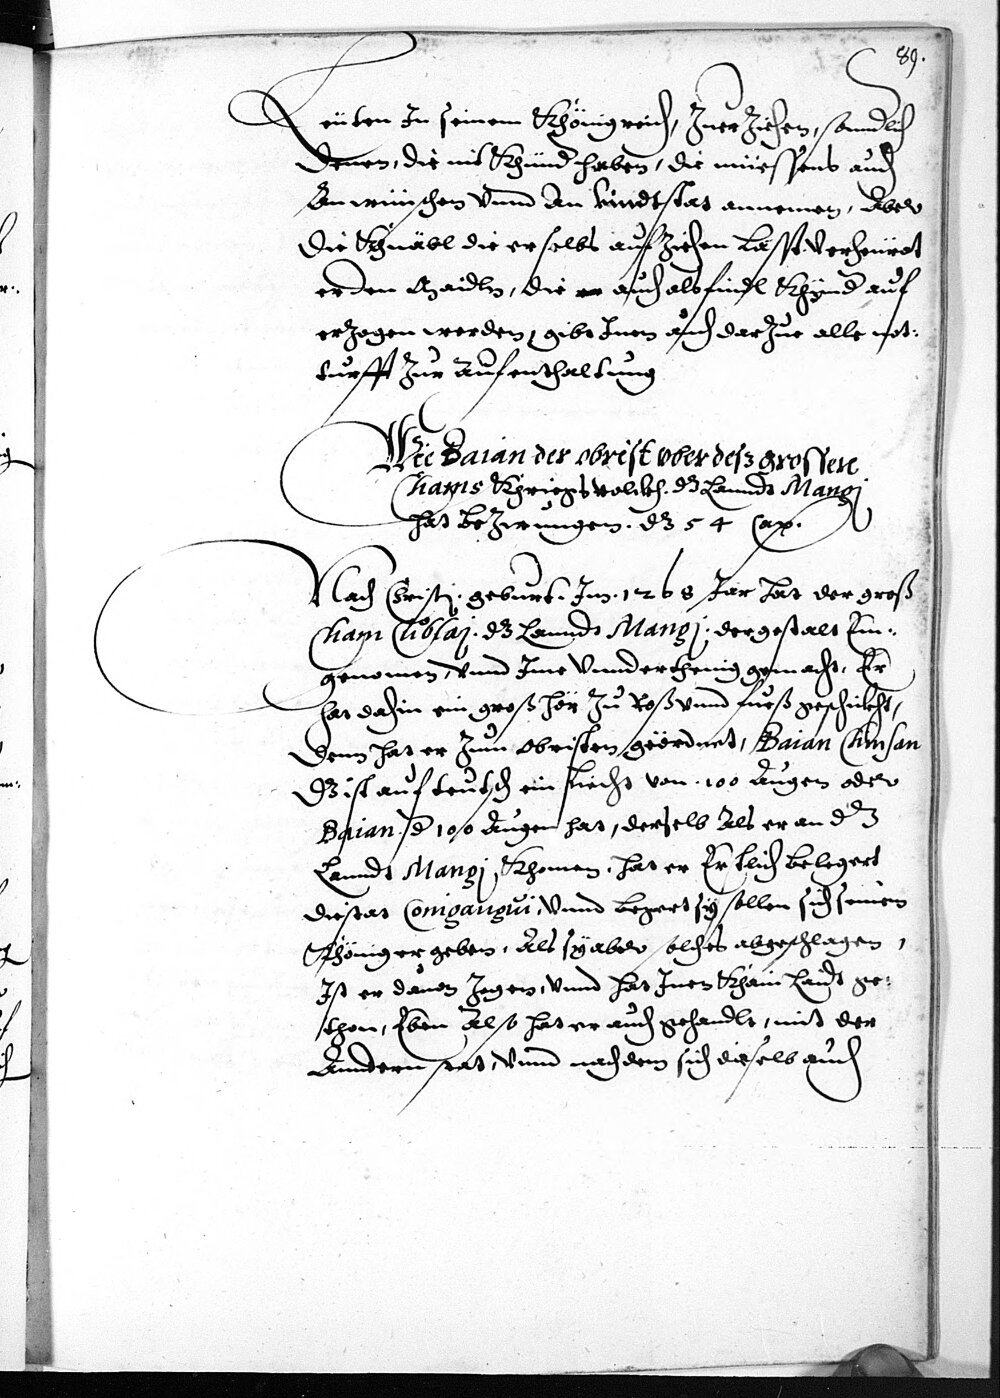 89.
Leüten In seinem Khönigreich, Zuerziehen, sonndlich
Denen, die nit Khünd haben, die müessens auch
An wünschen vnnd An kindtstat annemen, Aber
die Khnäbl die er selbs auf Ziehen Lässt verheürat
er den Maidln, die auch als findl Khynd auf
erzogen werden, gibt Inen auch darzue alle not:
turfft Zur Aufenthaltung
Wie Baian der obrist vber desz grossen
Chams Khriegsvolckh. dz Lanndt Mangi
hat bezwungen. dz 54 Cap.
Nach Christi. geburt. Im. 1268 Jar hat der groß
Cham Cublai. dz Lanndt Mangi. dergestalt Ein:
genomen, vnnd Ime vnnderthenig gemacht. Er
hat dahin ein groß hör Zu Roß vnnd fueß geschickht,
Denn hat er Zum obristen geördnet, Baian Chinsan
dz ist auf teutsch ein Liecht von. 100 Augen oder
Baian. d 100 Augen hat, derselb Als er an dz
Lanndt Mangi, Khomen, hat er Erstlich belegert
die stat Conigangui, vnnd begert sy sollen sich seinem
Khönig ergeben, Als sy aber solches abgeschlagen,
Ist er dauon Zogen, vnnd hat Inen Khain Laidt ge:
thon, Eben Also hat er auch gehandlt, mit der
Anndern stat, vnnd nachdem sich dieselb auch